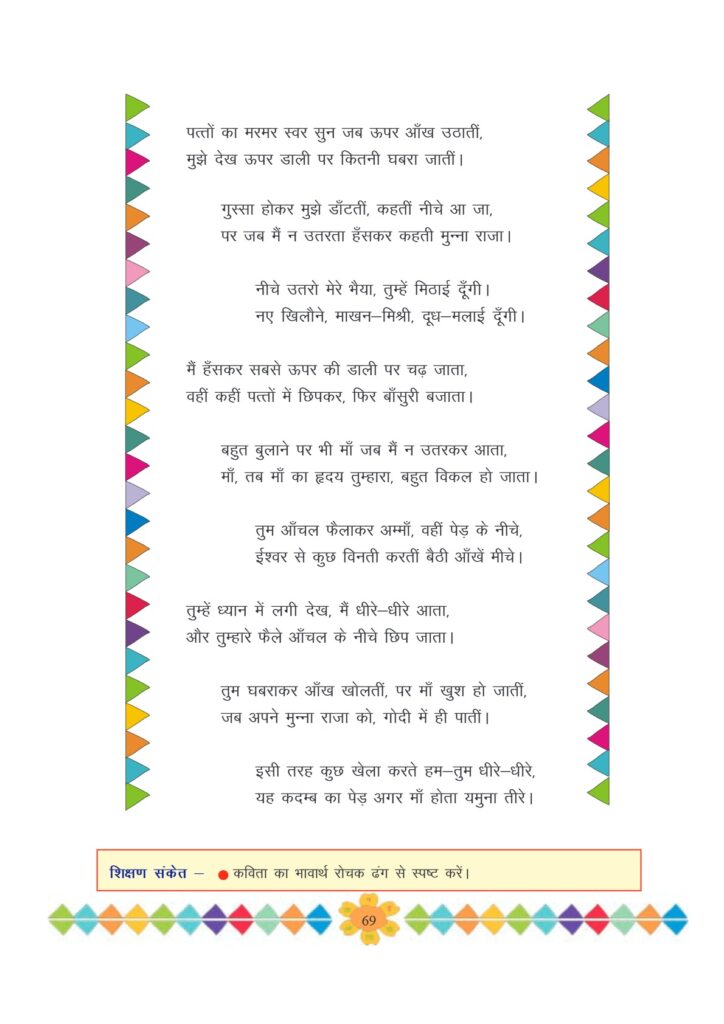 पत्तों का मरमर स्वर सुन जब ऊपर आँख उठातीं,
मुझे देख ऊपर डाली पर कितनी घबरा जातीं।
गुस्सा होकर मुझे डाँटतीं, कहतीं नीचे आ जा,
पर जब मैं न उतरता हँसकर कहती मुन्ना राजा।
नीचे उतरो मेरे भैया, तुम्हें मिठाई दूँगी।
नए खिलौने, माखन–मिश्री, दूध–मलाई दूँगी।
मैं हँसकर सबसे ऊपर की डाली पर चढ़ जाता,
वहीं कहीं पत्तों में छिपकर, फिर बाँसुरी बजाता।
बहुत बुलाने पर भी माँ जब मैं न उतरकर आता,
माँ, तब माँ का हृदय तुम्हारा, बहुत विकल हो जाता।
तुम आँचल फैलाकर अम्माँ, वहीं पेड़ के नीचे,
ईश्वर से कुछ विनती करतीं बैठी आँखें मीचे।
तुम्हें ध्यान में लगी देख, मैं धीरे–धीरे आता,
और तुम्हारे फैले आँचल के नीचे छिप जाता।
तुम घबराकर आँख खोलतीं, पर माँ खुश हो जातीं,
जब अपने मुन्ना राजा को, गोदी में ही पातीं।
इसी तरह कुछ खेला करते हम–तुम धीरे–धीरे,
यह कदम्ब का पेड़ अगर माँ होता यमुना तीरे।
शिक्षण संकेत – ● कविता का भावार्थ रोचक ढंग से स्पष्ट करें।
69